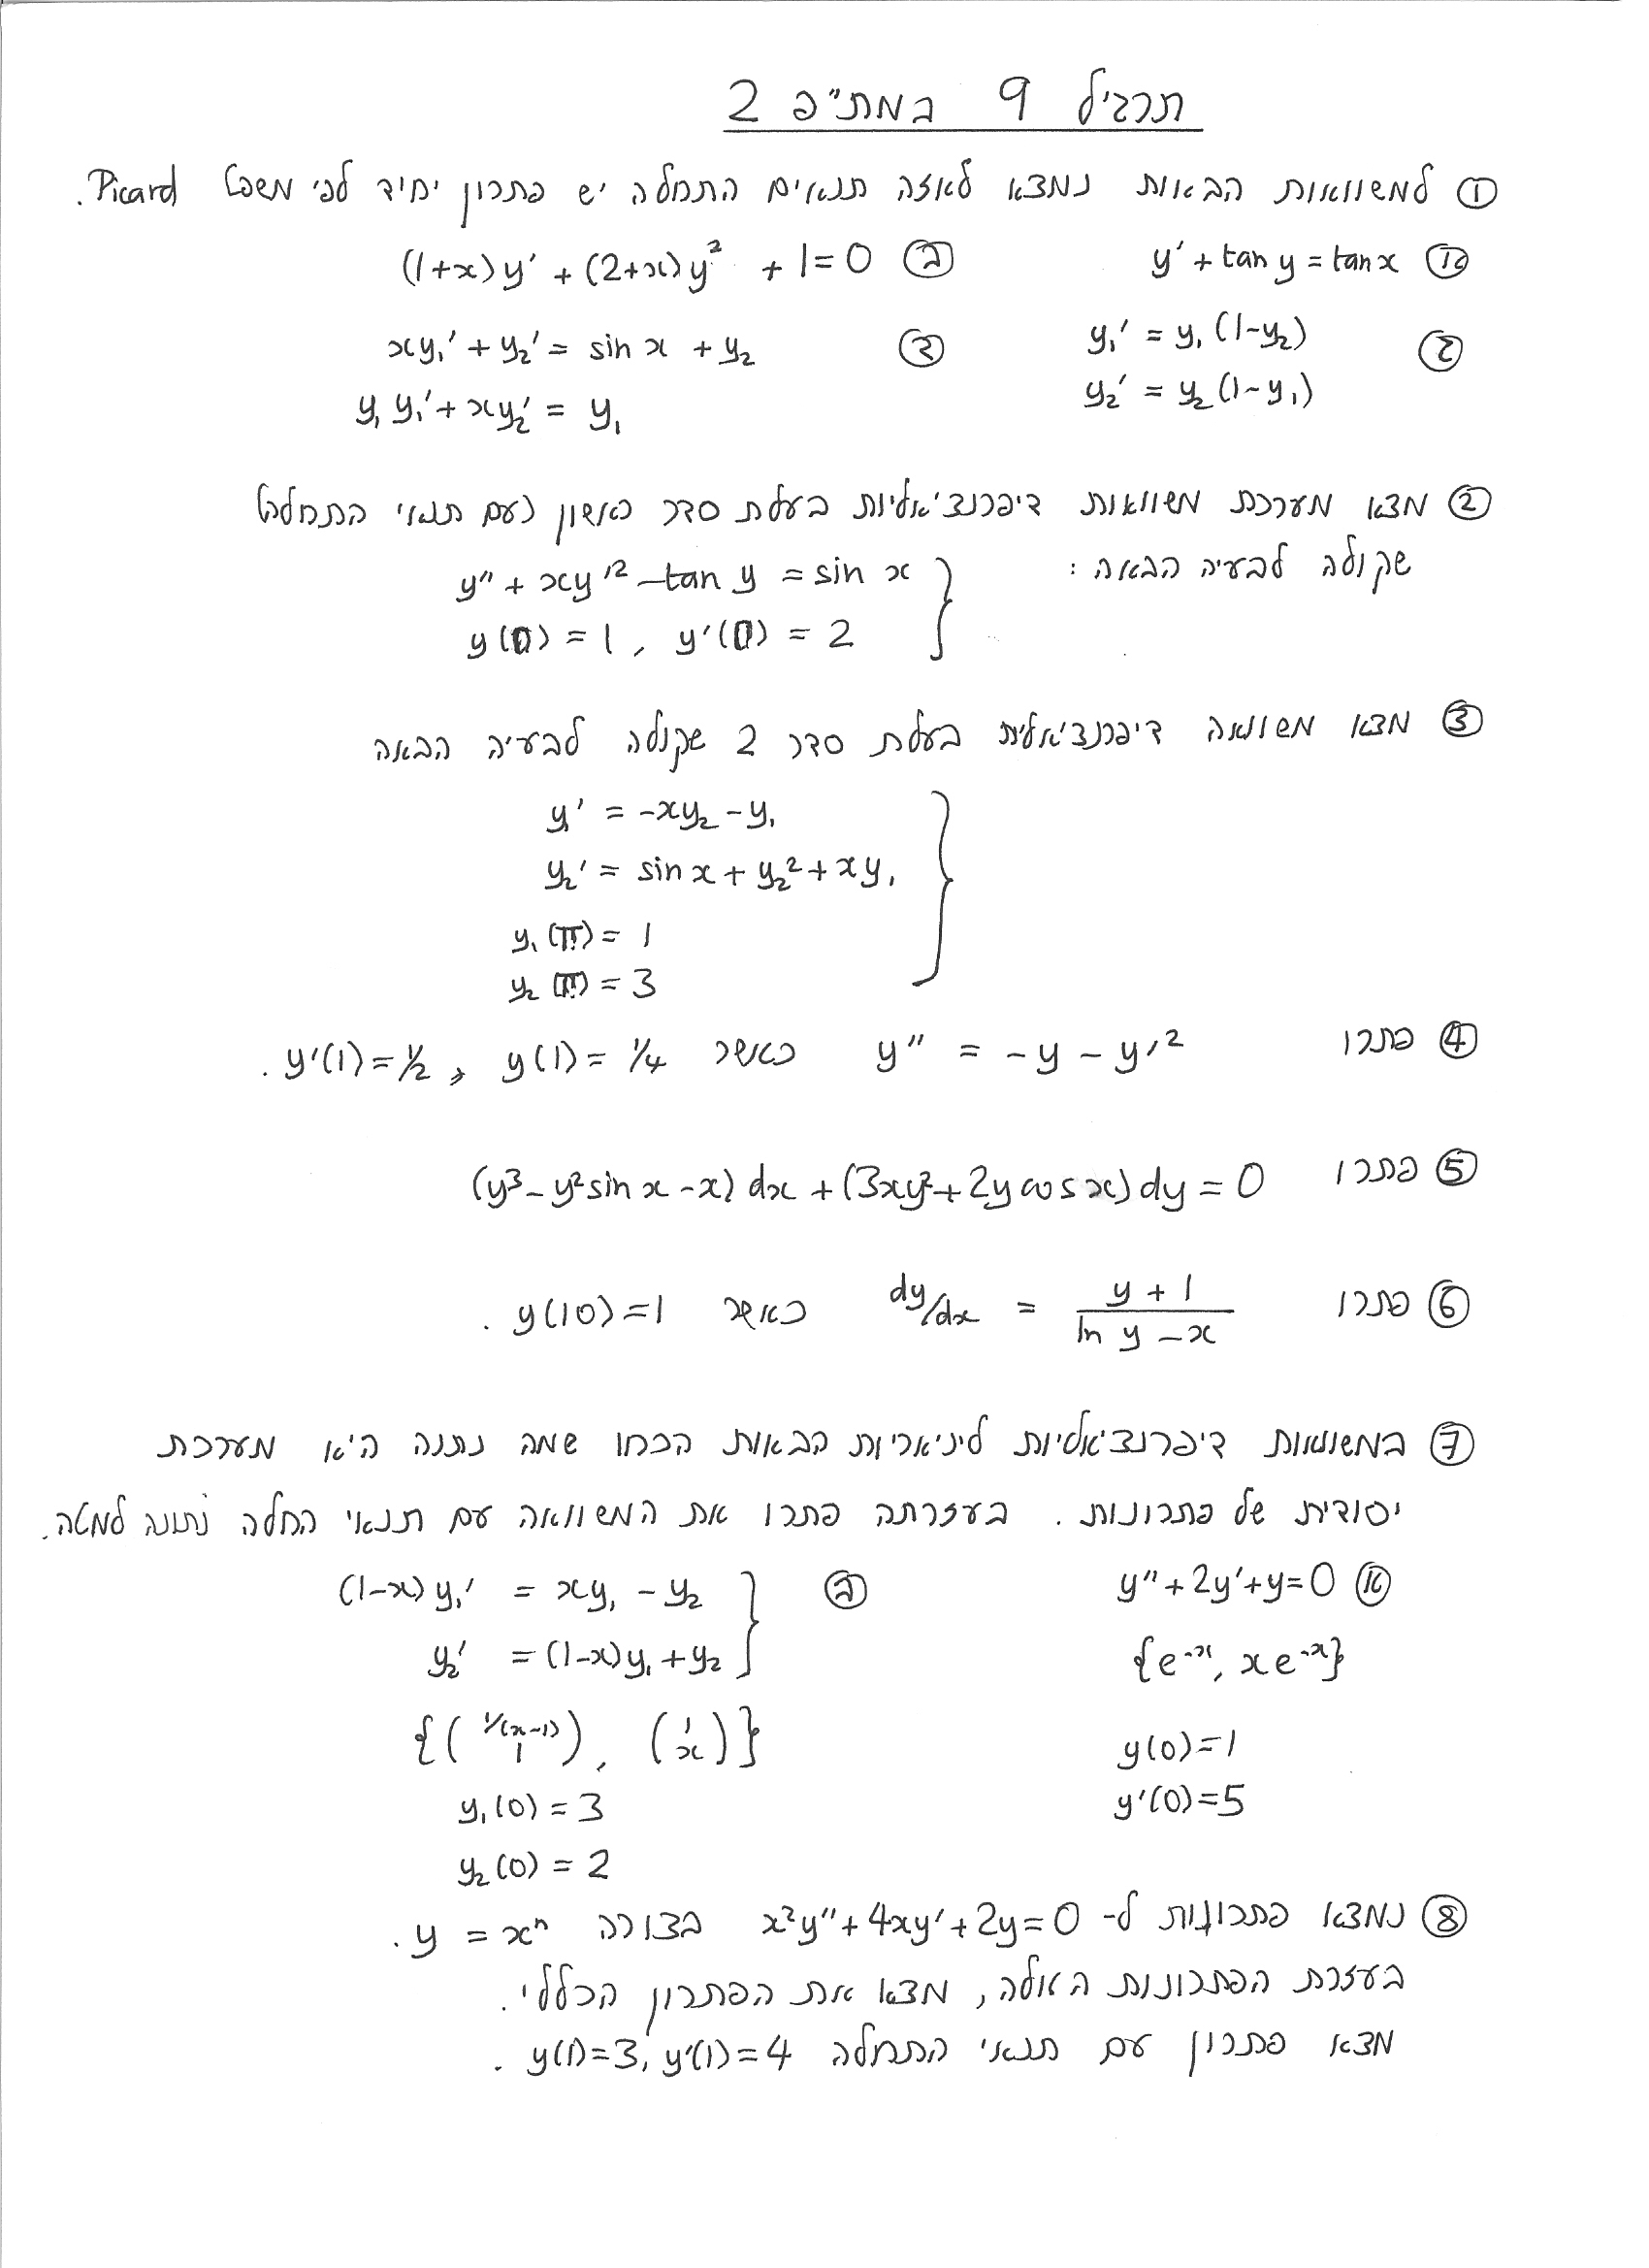 תרגיל 9 במת"פ 2
① למשוואות הבאות נמצא לאיזה תנאים התחלה יש פתרון יחיד לפי משפט Picard.
Ⓐ y' + tan y = tan x
ⓑ (1+x)y' + (2+x)y² + 1 = 0
ⓖ y₁' = y₁(1-y₂)
y₂' = y₂(1-y₁)
ⓓ xy₁' + y₂' = sin x + y₂
y₁y₁' + xy₂' = y₁
② מצא מערכת משוואות דיפרנצ'אליות בעלת סדר ראשון (עם תנאי התחלה)
שקולה לבעיה הבאה:
y'' + xy'² - tan y = sin x
y(0) = 1, y'(0) = 2
③ מצא משוואה דיפרנצ'אלית בעלת סדר 2 שקולה לבעיה הבאה
y₁' = -xy₂ - y₁
y₂' = sin x + y₂² + xy₁
y₁(π) = 1
y₂(π) = 3
④ פתרו y'' = -y - y'² כאשר y(1) = 1/4, y'(1) = 1/2.
⑤ פתרו (y³ - y² sin x - x) dx + (3xy² + 2y cos x) dy = 0
⑥ פתרו dy/dx = (y + 1)/(ln y - x) כאשר y(10) = 1.
⑦ במשוואות דיפרנצ'אליות לינאריות הבאות הכחו שמה נתנה היא מערכת
יסודית של פתרונות. בעזרתה פתרו את המשוואה עם תנאי החלה נתונה למטה.
א y'' + 2y' + y = 0
{e⁻ˣ, xe⁻ˣ}
y(0) = 1
y'(0) = 5
ב (1-x)y₁' = xy₁ - y₂
y₂' = (1-x)y₁ + y₂
{(1/(x-1) 1), (1 x)}
y₁(0) = 3
y₂(0) = 2
⑧ נמצא פתרונות ל- x²y'' + 4xy' + 2y = 0 בצורה y = xⁿ.
בעזרת הפתרונות האלה, מצא את הפתרון הכללי.
מצא פתרון עם תנאי התחלה y(1) = 3, y'(1) = 4.